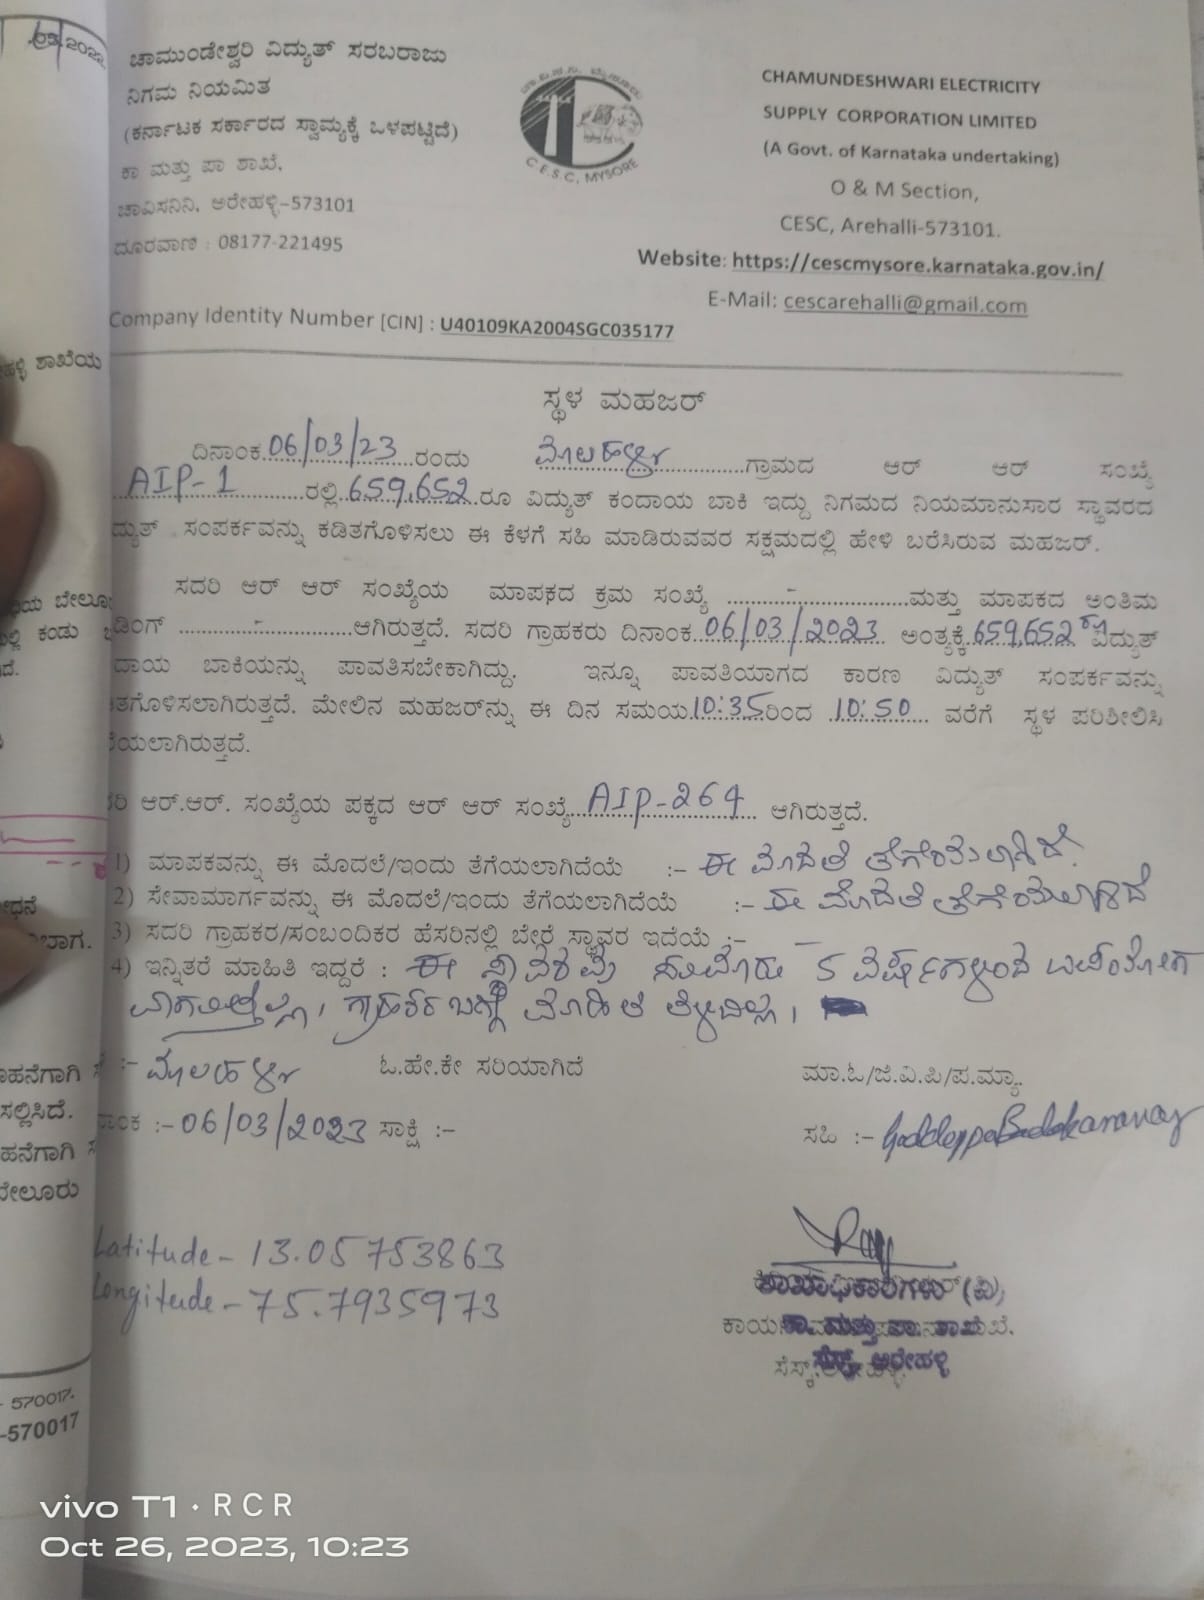 .03.2022
ಚಾಮುಂಡೇಶ್ವರಿ ವಿದ್ಯುತ್ ಸರಬರಾಜು
ನಿಗಮ ನಿಯಮಿತ
(ಕರ್ನಾಟಕ ಸರ್ಕಾರದ ಸ್ವಾಮ್ಯಕ್ಕೆ ಒಳಪಟ್ಟಿದೆ)
ಕಾ ಮತ್ತು ಪಾ ಶಾಖೆ,
ಚಾವಿಸನಿನಿ, ಅರೇಹಳ್ಳಿ-573101
ದೂರವಾಣಿ : 08177-221495
C.E.S.C, MYSORE
CHAMUNDESHWARI ELECTRICITY
SUPPLY CORPORATION LIMITED
(A Govt. of Karnataka undertaking)
O & M Section,
CESC, Arehalli-573101.
Website: https://cescmysore.karnataka.gov.in/
E-Mail: cescarehalli@gmail.com
Company Identity Number [CIN] : U40109KA2004SGC035177
ಸ್ಥಳ ಮಹಜರ್
ದಿನಾಂಕ 06/03/23 ರಂದು ಗ್ರಾಮದ ಆರ್ ಆರ್ ಸಂಖ್ಯೆ
AIP-1 ರಲ್ಲಿ 659,652 ರೂ ವಿದ್ಯುತ್ ಕಂದಾಯ ಬಾಕಿ ಇದ್ದು ನಿಗಮದ ನಿಯಮಾನುಸಾರ ಸ್ಥಾವರದ
ದ್ಯುತ್ ಸಂಪರ್ಕವನ್ನು ಕಡಿತಗೊಳಿಸಲು ಈ ಕೆಳಗೆ ಸಹಿ ಮಾಡಿರುವವರ ಸಕ್ಷಮದಲ್ಲಿ ಹೇಳಿ ಬರೆಸಿರುವ ಮಹಜರ್.
ಸದರಿ ಆರ್ ಆರ್ ಸಂಖ್ಯೆಯ ಮಾಪಕದ ಕ್ರಮ ಸಂಖ್ಯೆ - ಮತ್ತು ಮಾಪಕದ ಅಂತಿಮ
ಡಿಂಗ್ - ಆಗಿರುತ್ತದೆ. ಸದರಿ ಗ್ರಾಹಕರು ದಿನಾಂಕ 06/03/2023 ಅಂತ್ಯಕ್ಕೆ 659,652 ವಿದ್ಯುತ್
ದಾಯ ಬಾಕಿಯನ್ನು ಪಾವತಿಸಬೇಕಾಗಿದ್ದು. ಇನ್ನೂ ಪಾವತಿಯಾಗದ ಕಾರಣ ವಿದ್ಯುತ್ ಸಂಪರ್ಕವನ್ನು
ತಗೊಳಿಸಲಾಗಿರುತ್ತದೆ. ಮೇಲಿನ ಮಹಜರ್‌ನ್ನು ಈ ದಿನ ಸಮಯ 10:35 ರಿಂದ 10:50 ವರೆಗೆ ಸ್ಥಳ ಪರಿಶೀಲಿಸಿ
ಯಲಾಗಿರುತ್ತದೆ.
ರಿ ಆರ್.ಆರ್. ಸಂಖ್ಯೆಯ ಪಕ್ಕದ ಆರ್ ಆರ್ ಸಂಖ್ಯೆ AIP-264 ಆಗಿರುತ್ತದೆ.
1) ಮಾಪಕವನ್ನು ಈ ಮೊದಲೆ/ಇಂದು ತೆಗೆಯಲಾಗಿದೆಯೆ :- ಈ ಮೊದಲೆ ತೆಗೆಯಲಾಗಿದೆ.
2) ಸೇವಾಮಾರ್ಗವನ್ನು ಈ ಮೊದಲೆ/ಇಂದು ತೆಗೆಯಲಾಗಿದೆಯೆ :- ಈ ಮೊದಲೆ ತೆಗೆಯಲಾಗಿದೆ
3) ಸದರಿ ಗ್ರಾಹಕರ/ಸಂಬಂದಿಕರ ಹೆಸರಿನಲ್ಲಿ ಬೇರೆ ಸ್ಥಾವರ ಇದೆಯೆ :- -
4) ಇನ್ನಿತರೆ ಮಾಹಿತಿ ಇದ್ದರೆ : ಈ ಸ್ಥಾವರವು ಸುಮಾರು 5 ವರ್ಷಗಳಿಂದ
ಗ್ರಾಹಕರ ಬಗ್ಗೆ ಮಾಹಿತಿ
ಓ.ಹೇ.ಕೇ ಸರಿಯಾಗಿದೆ
ಮಾ.ಓ/ಜಿ.ವಿ.ಪಿ/ಪ.ಮ್ಯಾ.
ಾಂಕ :- 06/03/2023 ಸಾಕ್ಷಿ :-
ಸಹಿ :-
Latitude - 13.05753863
Longitude - 75.7935973
ಶಾಖಾಧಿಕಾರಿಗಳು (ವಿ)
ಕಾ. ಮತ್ತು ಪಾ. ಶಾಖೆ
ಸೆಸ್ಕ್, ಅರೇಹಳ್ಳಿ
ಶಾಖೆಯ
ಬೇಲೂರು
ಕಂಡು
ಸಲ್ಲಿಸಿದೆ.
ಬೇಲೂರು
- 570017.
-570017
vivo T1 · RCR
Oct 26, 2023, 10:23